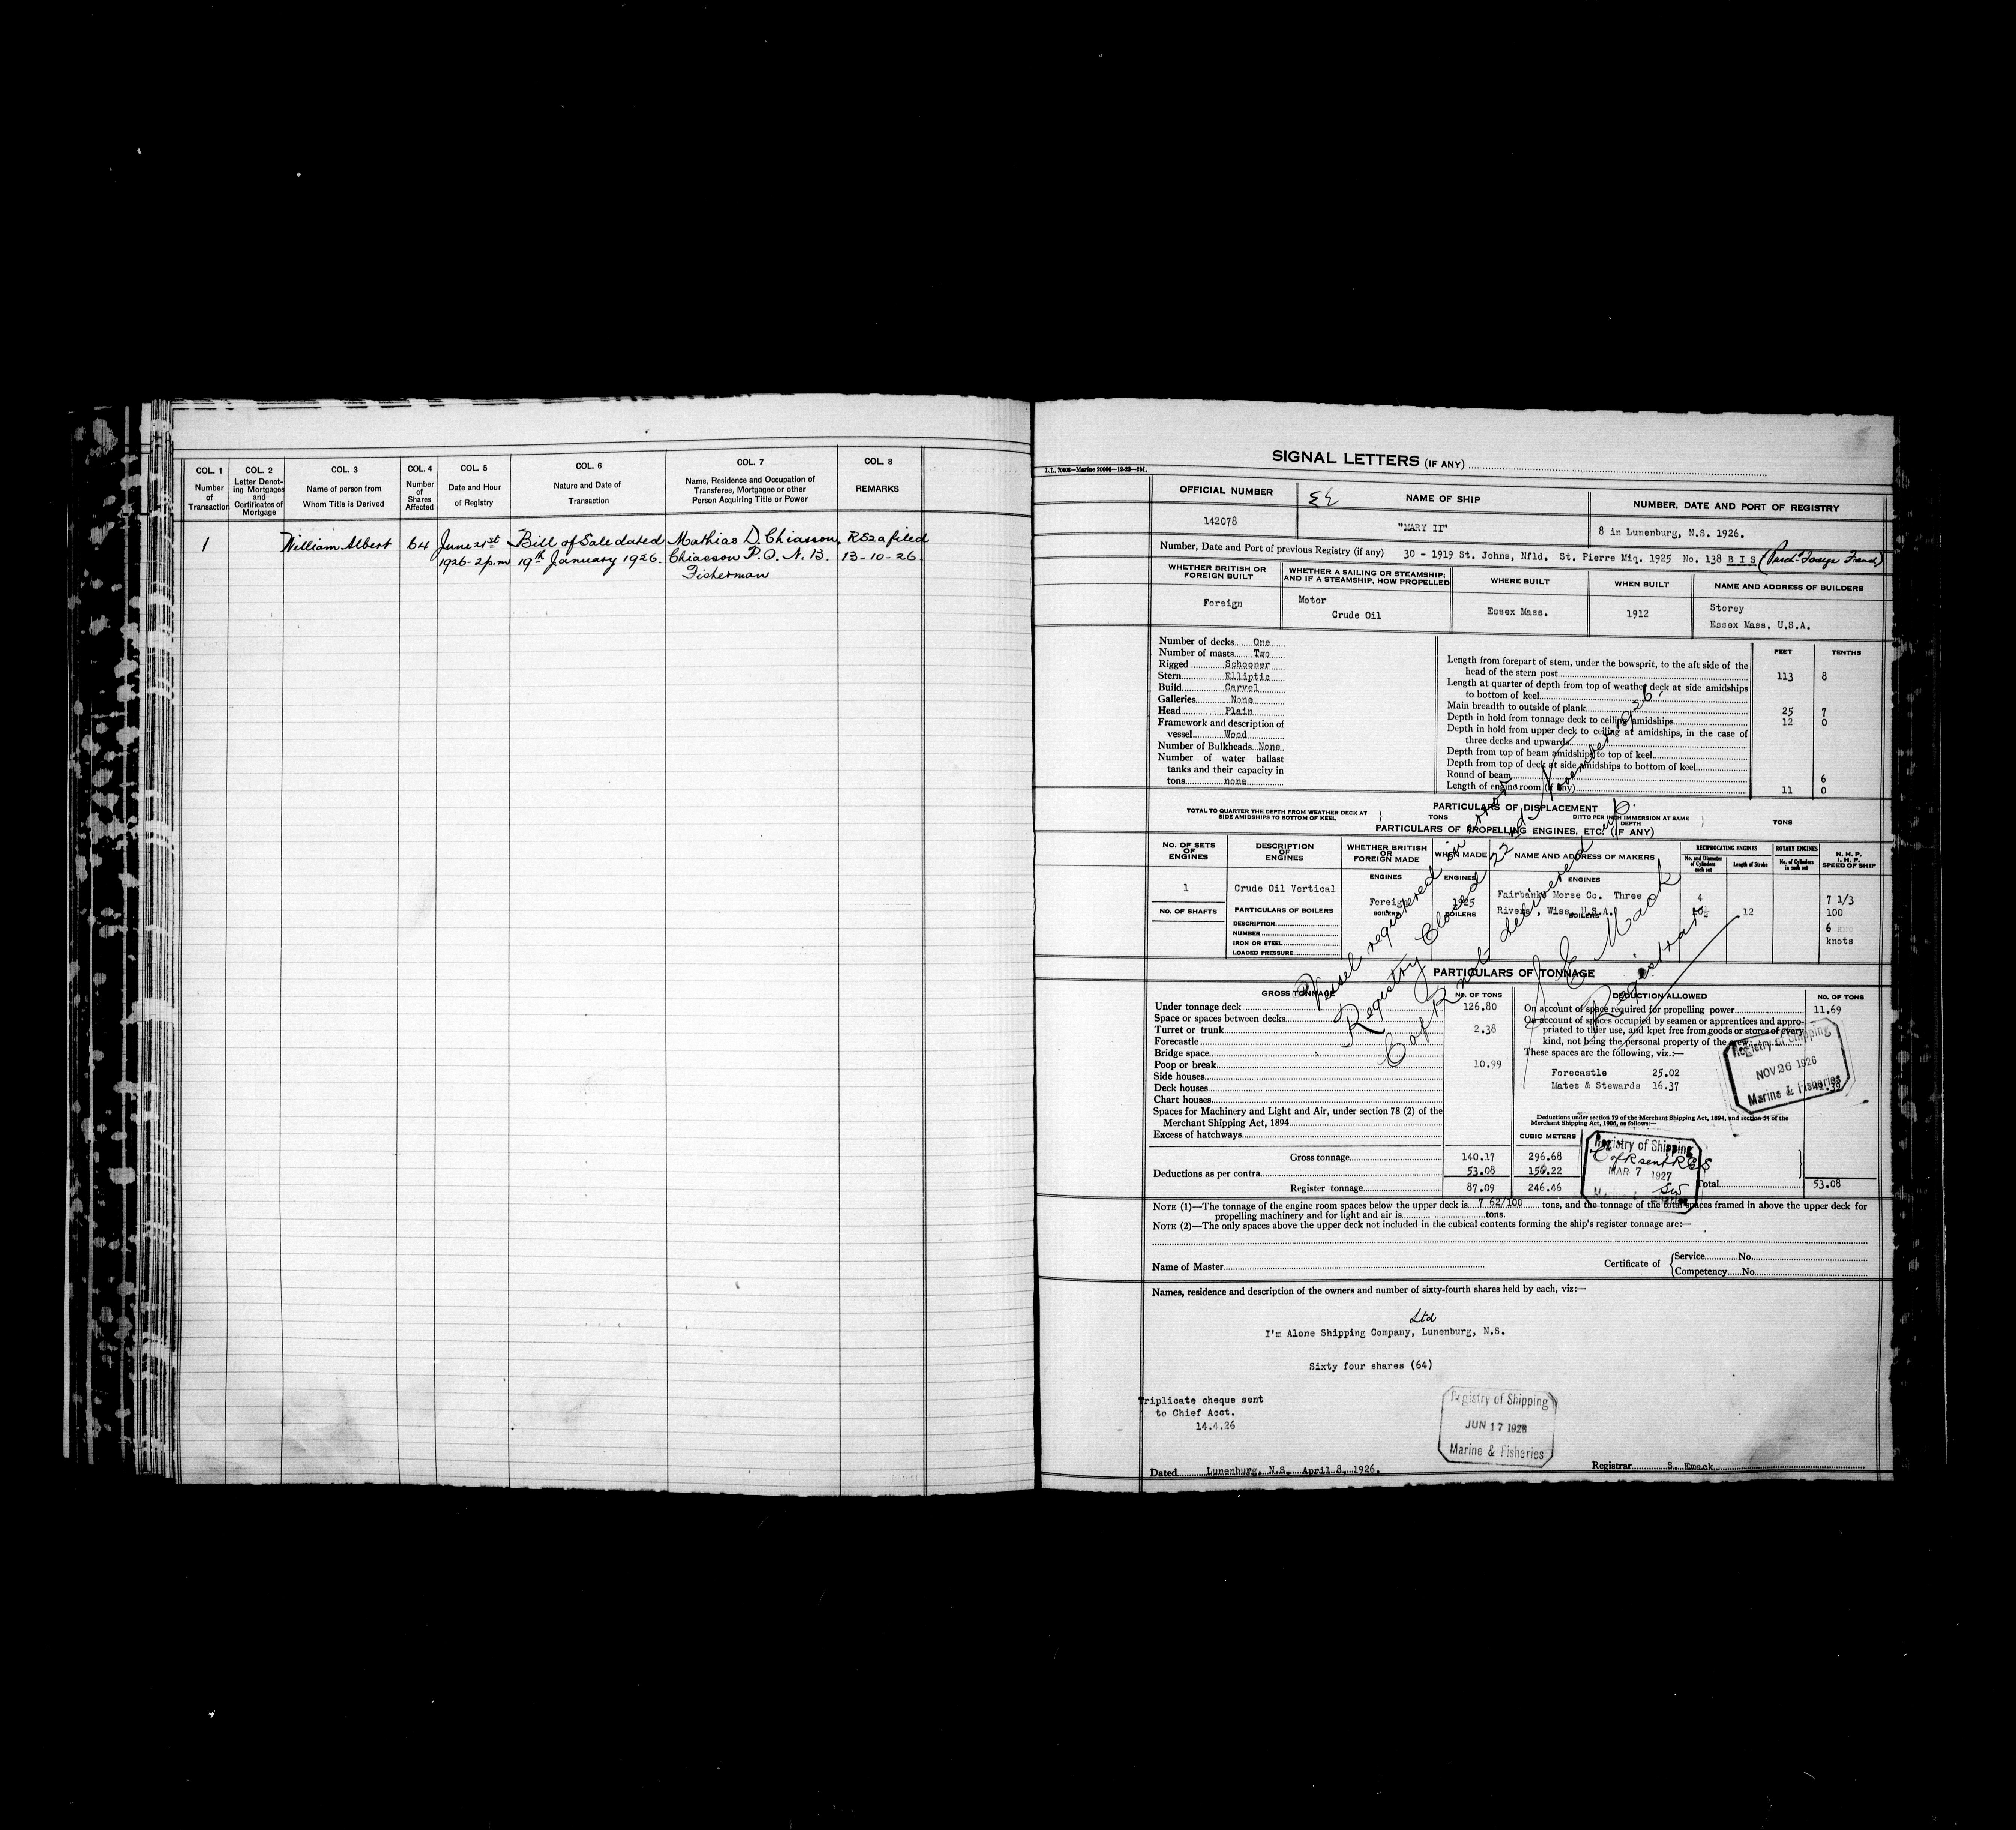 COL. 1
Number
of
Transaction
COL. 2
Letter Denot-
ing Mortgages
and
Certificates of
Mortgage
COL. 3
Name of person from
Whom Title is Derived
COL. 4
Number
of
Shares
Affected
COL. 5
Date and Hour
of Registry
COL. 6
Nature and Date of
Transaction
COL. 7
Name, Residence and Occupation of
Transferee, Mortgagee or other
Person Acquiring Title or Power
COL. 8
REMARKS
1 William Albert 64 June 21st Bill of Sale dated Mathias D. Chiasson, R52a filed
1926-2p.m 19th January 1926. Chiasson P.O. N.B. 13-10-26.
Fisherman
SIGNAL LETTERS (IF ANY)
OFFICIAL NUMBER
NAME OF SHIP
NUMBER, DATE AND PORT OF REGISTRY
142078
"MARY II"
8 in Lunenburg, N.S. 1926.
Number, Date and Port of previous Registry (if any) 30 - 1919 St. Johns, Nfld. St. Pierre Miq. 1925 No. 138 B I S
WHETHER BRITISH OR
FOREIGN BUILT
WHETHER A SAILING OR STEAMSHIP;
AND IF A STEAMSHIP, HOW PROPELLED
WHERE BUILT
WHEN BUILT
NAME AND ADDRESS OF BUILDERS
Foreign
Motor
Crude Oil
Essex Mass.
1912
Storey
Essex Mass. U.S.A.
Number of decks One
Number of masts Two
Rigged Schooner
Stern Elliptic
Build Carvel
Galleries None
Head Plain
Framework and description of
vessel Wood
Number of Bulkheads None
Number of water ballast
tanks and their capacity in
tons none
FEET TENTHS
Length from forepart of stem, under the bowsprit, to the aft side of the
head of the stern post 113 8
Length at quarter of depth from top of weather deck at side amidships
to bottom of keel
Main breadth to outside of plank 25 7
Depth in hold from tonnage deck to ceiling amidships 12 0
Depth in hold from upper deck to ceiling at amidships, in the case of
three decks and upwards
Depth from top of beam amidships to top of keel
Depth from top of deck at side amidships to bottom of keel
Round of beam 6
Length of engine room (if any) 11 0
PARTICULARS OF DISPLACEMENT
TOTAL TO QUARTER THE DEPTH FROM WEATHER DECK AT
SIDE AMIDSHIPS TO BOTTOM OF KEEL
TONS
DITTO PER INCH IMMERSION AT SAME
DEPTH
TONS
PARTICULARS OF PROPELLING ENGINES, ETC. (IF ANY)
NO. OF SETS
OF
ENGINES
DESCRIPTION
OF
ENGINES
WHETHER BRITISH
OR
FOREIGN MADE
WHEN MADE
NAME AND ADDRESS OF MAKERS
RECIPROCATING ENGINES
No. and Diameter
of Cylinders
each set
Length of Stroke
ROTARY ENGINES
No. of Cylinders
in each set
N. H. P.
I. H. P.
SPEED OF SHIP
ENGINES
ENGINES
ENGINES
1
Crude Oil Vertical
Foreign
1925
Fairbanks Morse Co. Three
Rivers, Wiss. U.S.A.
4
10½
12
7 1/3
100
6
knots
NO. OF SHAFTS
PARTICULARS OF BOILERS
BOILERS
BOILERS
BOILERS
DESCRIPTION
NUMBER
IRON OR STEEL
LOADED PRESSURE
Vessel registered in error
Registry Closed 22nd November 1926
C of R not delivered up.
J E Mack
Registrar
PARTICULARS OF TONNAGE
GROSS TONNAGE
NO. OF TONS
Under tonnage deck 126.80
Space or spaces between decks
Turret or trunk 2.38
Forecastle
Bridge space
Poop or break 10.99
Side houses
Deck houses
Chart houses
Spaces for Machinery and Light and Air, under section 78 (2) of the
Merchant Shipping Act, 1894
Excess of hatchways
CUBIC METERS
Gross tonnage 140.17 296.68
Deductions as per contra 53.08 150.22
Register tonnage 87.09 246.46
DEDUCTION ALLOWED
NO. OF TONS
On account of space required for propelling power 11.69
On account of spaces occupied by seamen or apprentices and appro-
priated to their use, and kpet free from goods or stores of every
kind, not being the personal property of the
These spaces are the following, viz.:—
Forecastle 25.02
Mates & Stewards 16.37
Registry of Shipping
NOV 26 1926
Marine & Fisheries
Deductions under section 79 of the Merchant Shipping Act, 1894, and section 54 of the
Merchant Shipping Act, 1906, as follows:—
Registry of Shipping
C of R sent R G S
MAR 7 1927
Total 53.08
NOTE (1)—The tonnage of the engine room spaces below the upper deck is 7 62/100 tons, and the tonnage of the total spaces framed in above the upper deck for
propelling machinery and for light and air is tons.
NOTE (2)—The only spaces above the upper deck not included in the cubical contents forming the ship's register tonnage are:—
Name of Master
Certificate of
Service No.
Competency No.
Names, residence and description of the owners and number of sixty-fourth shares held by each, viz:—
Ltd
I'm Alone Shipping Company, Lunenburg, N.S.
Sixty four shares (64)
Triplicate cheque sent
to Chief Acct.
14.4.26
Registry of Shipping
JUN 17 1926
Marine & Fisheries
Dated Lunenburg, N.S. April 8, 1926.
Registrar S. Emack